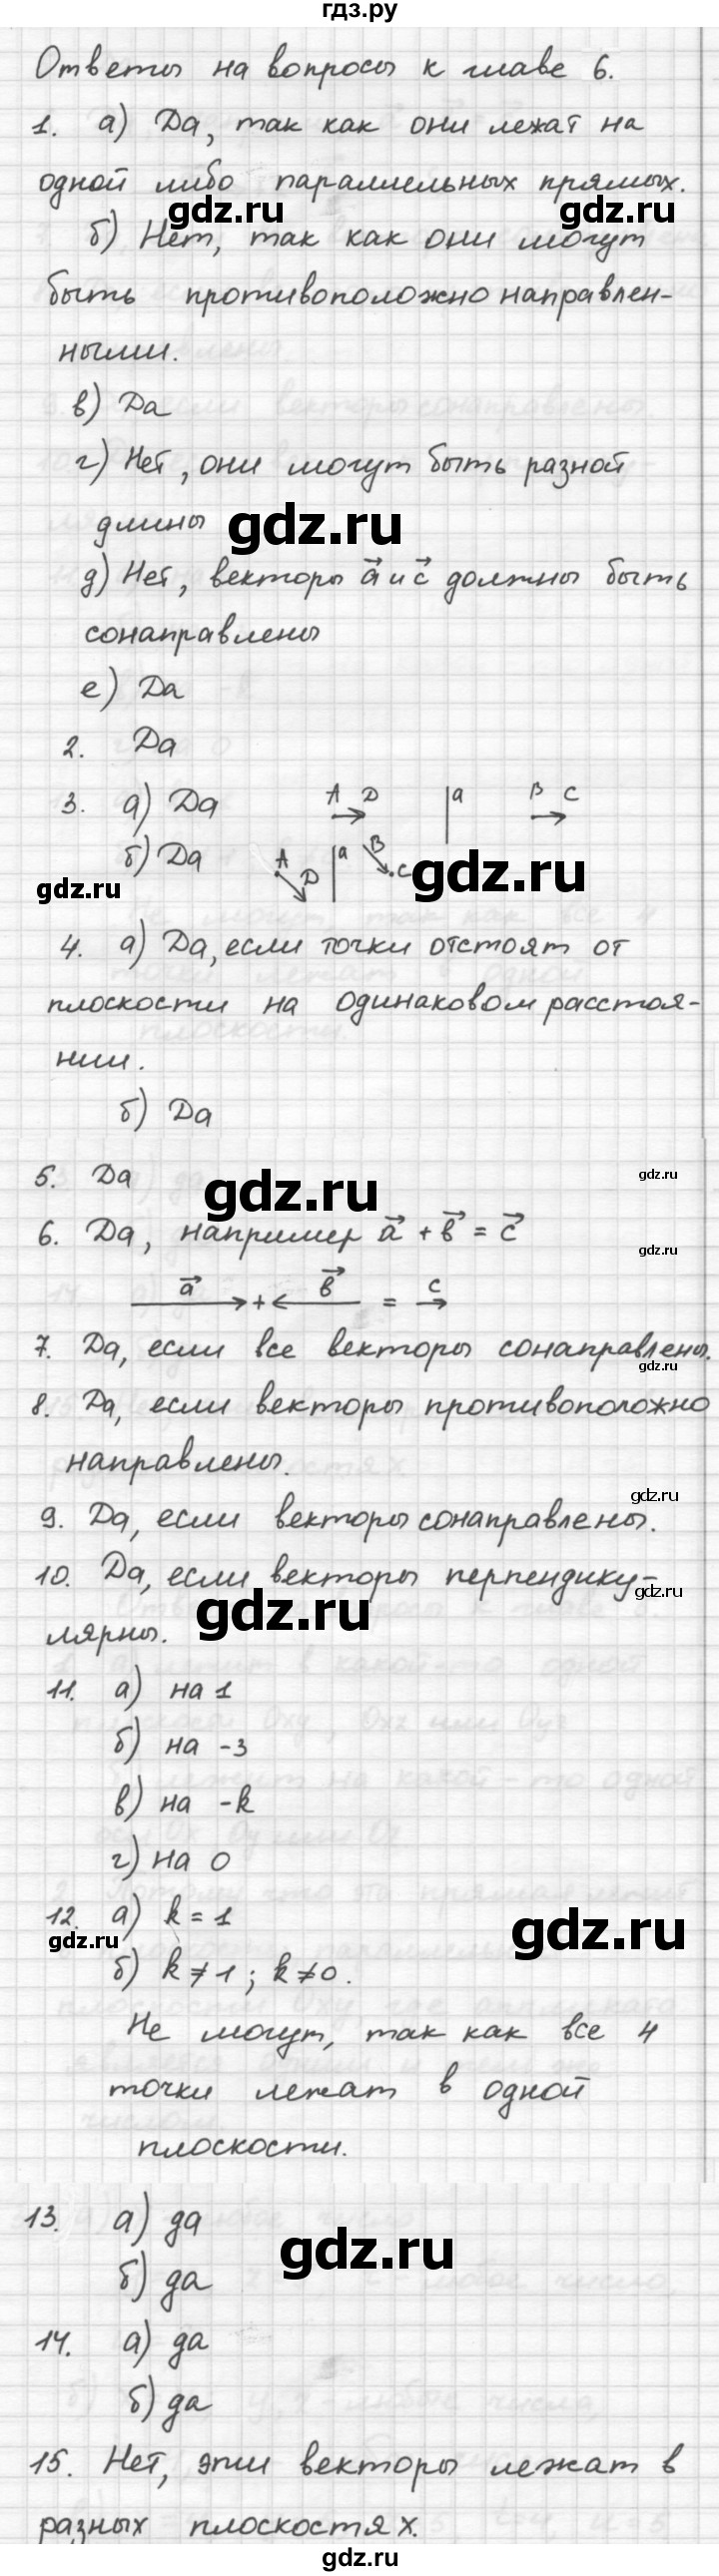 гдз.ру
Ответы на вопросы к главе 6.
1. а) Да, так как они лежат на
одной либо параллельных прямых.
gdz.ru gdz.ru
б) Нет, так как они могут
быть противоположно направлен-
ными.
в) Да
г) Нет, они могут быть разной
длины
gdz.ru
д) Нет, векторы a⃗ и c⃗ должны быть
сонаправлены
е) Да
2. Да
3. а) Да A D a B C
б) Да A D a B C
gdz.ru gdz.ru
4. а) Да, если точки отстоят от
плоскости на одинаковом расстоя-
нии.
б) Да
5. Да
gdz.ru gdz.ru
6. Да, например a⃗ + b⃗ = c⃗
gdz.ru
a⃗ + b⃗ = c
7. Да, если все векторы сонаправлены.
gdz.ru
8. Да, если векторы противоположно
направлены.
gdz.ru
9. Да, если векторы сонаправлены.
10. Да, если векторы перпендику-
gdz.ru gdz.ru
лярны.
11. а) на 1
б) на -3
в) на -k
г) на 0
12. а) k = 1
gdz.ru gdz.ru
б) k ≠ 1; k ≠ 0.
Не могут, так как все 4
точки лежат в одной
плоскости.
13. а) да
gdz.ru
б) да
14. а) да
б) да
15. Нет, эти векторы лежат в
разных плоскостях.
gdz.ru